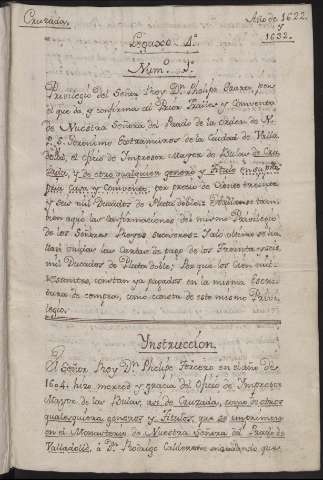 Cruzada. Año de 1622.
y
1632.
Legaxo 4.º
Num.º 1.º
Privilegio del Señor Rey Dn. Phelipe Quarto, por
el que dà, y confirma al Prior, Frailes, y Convento
de Nuestra Señora del Prado de la Orden de N.
P. S. Geronimo Extramuros de la Ciudad de Valla-
dolid, el oficio de Impresor Mayor de Bulas de Cru-
zada, y de otro qualquier genero y Titulo en su pro-
pria Casa y Convento, por precio de Ciento treinta
y seis mil Ducados de Plata doble: Hallanse tam-
bien aqui las confirmaciones del mismo Privilegio
de los Señores Reyes sucesores: Y alo ultimo se ha-
llan las Cartas de pago de los Treinta y seis
mil Ducados de Plata doble; Por que los Cien mil
restantes, constan ya pagados en la misma Escri-
tura de compra, como consta de este mismo Privi-
legio.
Ynstruccion.
El Señor Rey Dn. Phelipe Tercero en el año de
1604. hizo merced y gracia del Oficio de Impresor
Mayor de las Bulas, asi de Cruzada, como de otros
qualesquiera generos y Titulos, que se imprimen
en el Monasterio de Nuestra Señora del Prado de
Valladolid, à Dn. Rodrigo Calderon: enagenando que